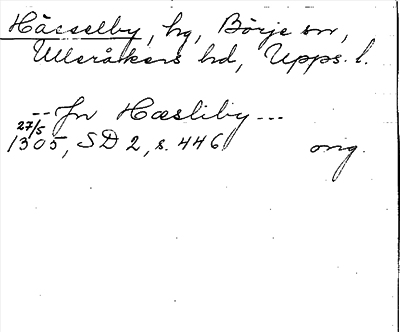 Hässelby, hg, Börje sn,
Ulleråkers hd, Upps. l.
-- Jn Hæsliby ---
27/5
1305, SD 2, s. 446 orig.